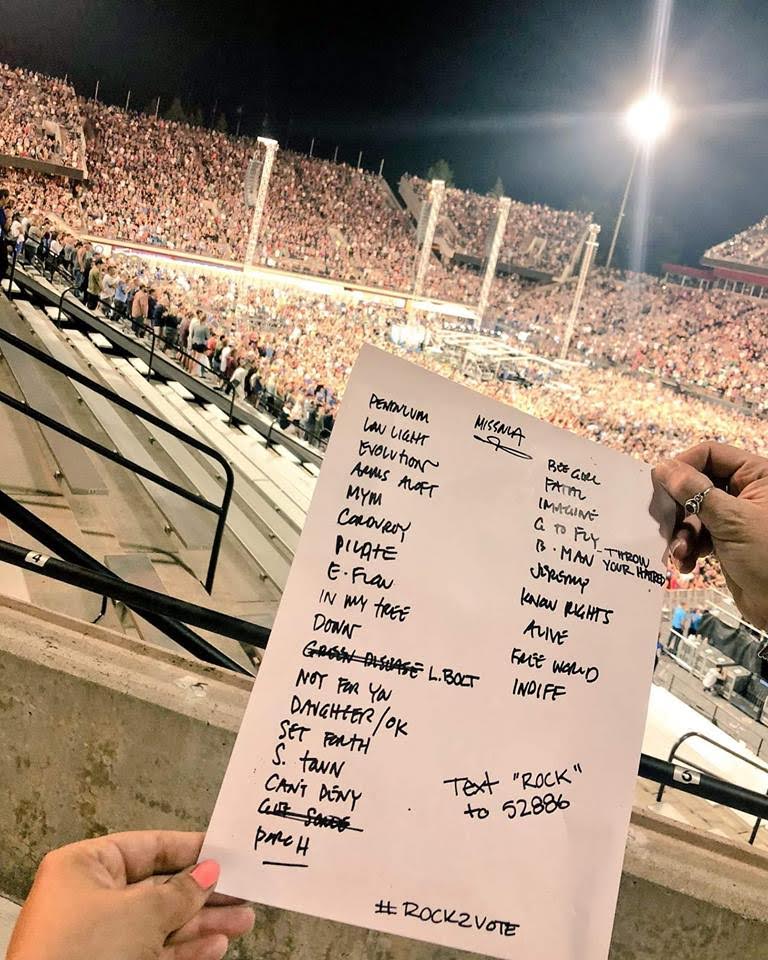 MISSOULA
PENDULUM
LOW LIGHT
EVOLUTION
ARMS ALOFT
MYM
CORDUROY
PILATE
E. FLOW
IN MY TREE
DOWN
GREEN DISEASE L. BOLT
NOT FOR YOU
DAUGHTER/OK
SET FORTH
S. TOWN
CAN'T DENY
PORCH
BEE GIRL
FATAL
IMAGINE
G TO FLY
B. MAN - THROW YOUR HATRED
JEREMY
KNOW RIGHTS
ALIVE
FREE WORLD
INDIFF
TEXT "ROCK"
to 52886
#ROCK2VOTE
4
3